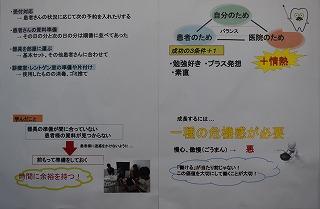 ・受付対応
→ 患者さんの状況に応じて次の予約を入れたりする
・患者さんの資料準備
→ その日の分と次の日の分は順番に並べてあった
・器具を各層に運ぶ
→ 基本セット、その他患者さんに合わせて
・診療室・レントゲン室の準備や片付け
→ 使用したものの消毒、ゴミ捨て
学んだこと
器具の準備が間に合っていない
患者様の資料が見つからない
患者様に迷惑をかけないように…
前もって準備をしておく
時間に余裕を持つ!
自分のため
バランス
患者のため
医院のため
成功の3条件+1
・勉強好き ・プラス発想
・素直
+情熱
成長するには…
一種の危機感が必要
慢心、傲慢(ごうまん) → 悪
「働ける」が当たり前じゃない!
この価値を大切にして働くことが大切!